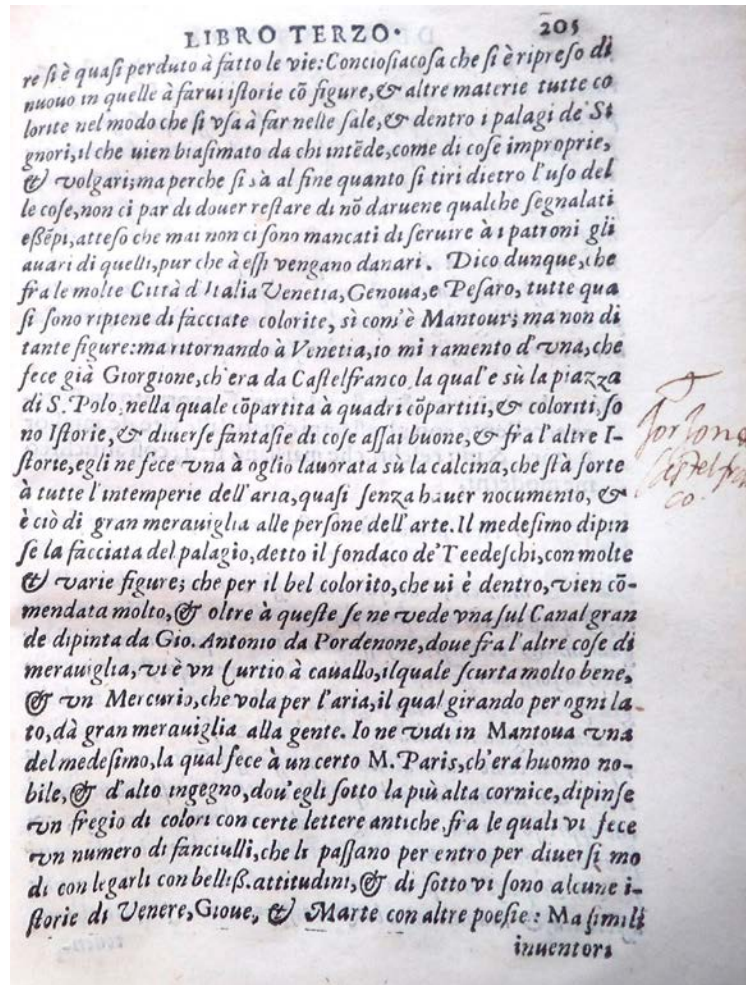 LIBRO TERZO. 205
re si è quasi perduto à fatto le vie: Conciosiacosa che si è ripreso di
nuouo in quelle à farui istorie cõ figure, & altre materie tutte co
lorite nel modo che si vsa à far nelle sale, & dentro i palagi de' Si
gnori, il che uien biasimato da chi intẽde, come di cose improprie,
& volgari; ma perche si sà al fine quanto si tiri dietro l'uso del
le cose, non ci par di douer restare di nõ daruene qualche segnalati
essẽpi, atteso che mai non ci sono mancati di seruire à i patroni gli
auari di quelli, pur che à essi vengano danari. Dico dunque, che
fra le molte Città d'Italia Venetia, Genoua, e Pesaro, tutte qua
si sono ripiene di facciate colorite, sì com'è Mantoua; ma non di
tante figure: ma ritornando à Venetia, io mi ramento d'vna, che
fece già Giorgione, ch'era da Castelfranco, la qual'e sù la piazza
di S. Polo, nella quale cõpartita à quadri cõpartiti, & coloriti, so
no Istorie, & diuerse fantasie di cose assai buone, & fra l'altre I-
storie, egli ne fece vna à oglio lauorata sù la calcina, che stà forte
à tutte l'intemperie dell'aria, quasi senza hauer nocumento, &
è ciò di gran merauiglia alle persone dell'arte. Il medesimo dipin
se la facciata del palagio, detto il fondaco de' Teedeschi, con molte
& varie figure; che per il bel colorito, che ui è dentro, vien cõ-
mendata molto, & oltre à queste se ne vede vna sul Canal gran
de dipinta da Gio. Antonio da Pordenone, doue fra l'altre cose di
merauiglia, vi è vn Curtio à cauallo, il quale scurta molto bene,
& vn Mercurio, che vola per l'aria, il qual girando per ogni la-
to, dà gran merauiglia alla gente. Io ne vidi in Mantoua vna
del medesimo, la qual fece à un certo M. Paris, ch'era huomo no-
bile, & d'alto ingegno, dou'egli sotto la più alta cornice, dipinse
vn fregio di colori con certe lettere antiche, fra le quali vi fece
vn numero di fanciulli, che li passano per entro per diuersi mo
di con legarli con belliss. attitudini, & di sotto vi sono alcune i-
storie di Venere, Gioue, & Marte con altre poesie: Ma simili
inuentori